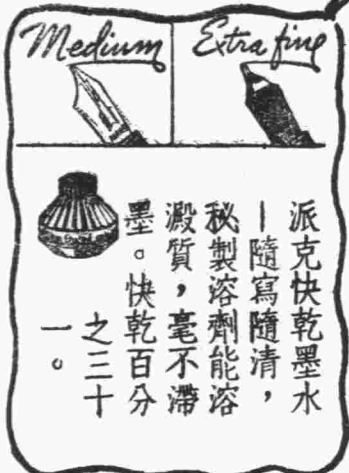 Medium
Extra fine
派克快乾墨水
—隨寫隨清，
秘製溶劑能溶
澱質，毫不滯
墨。快乾百分
之三十
一。